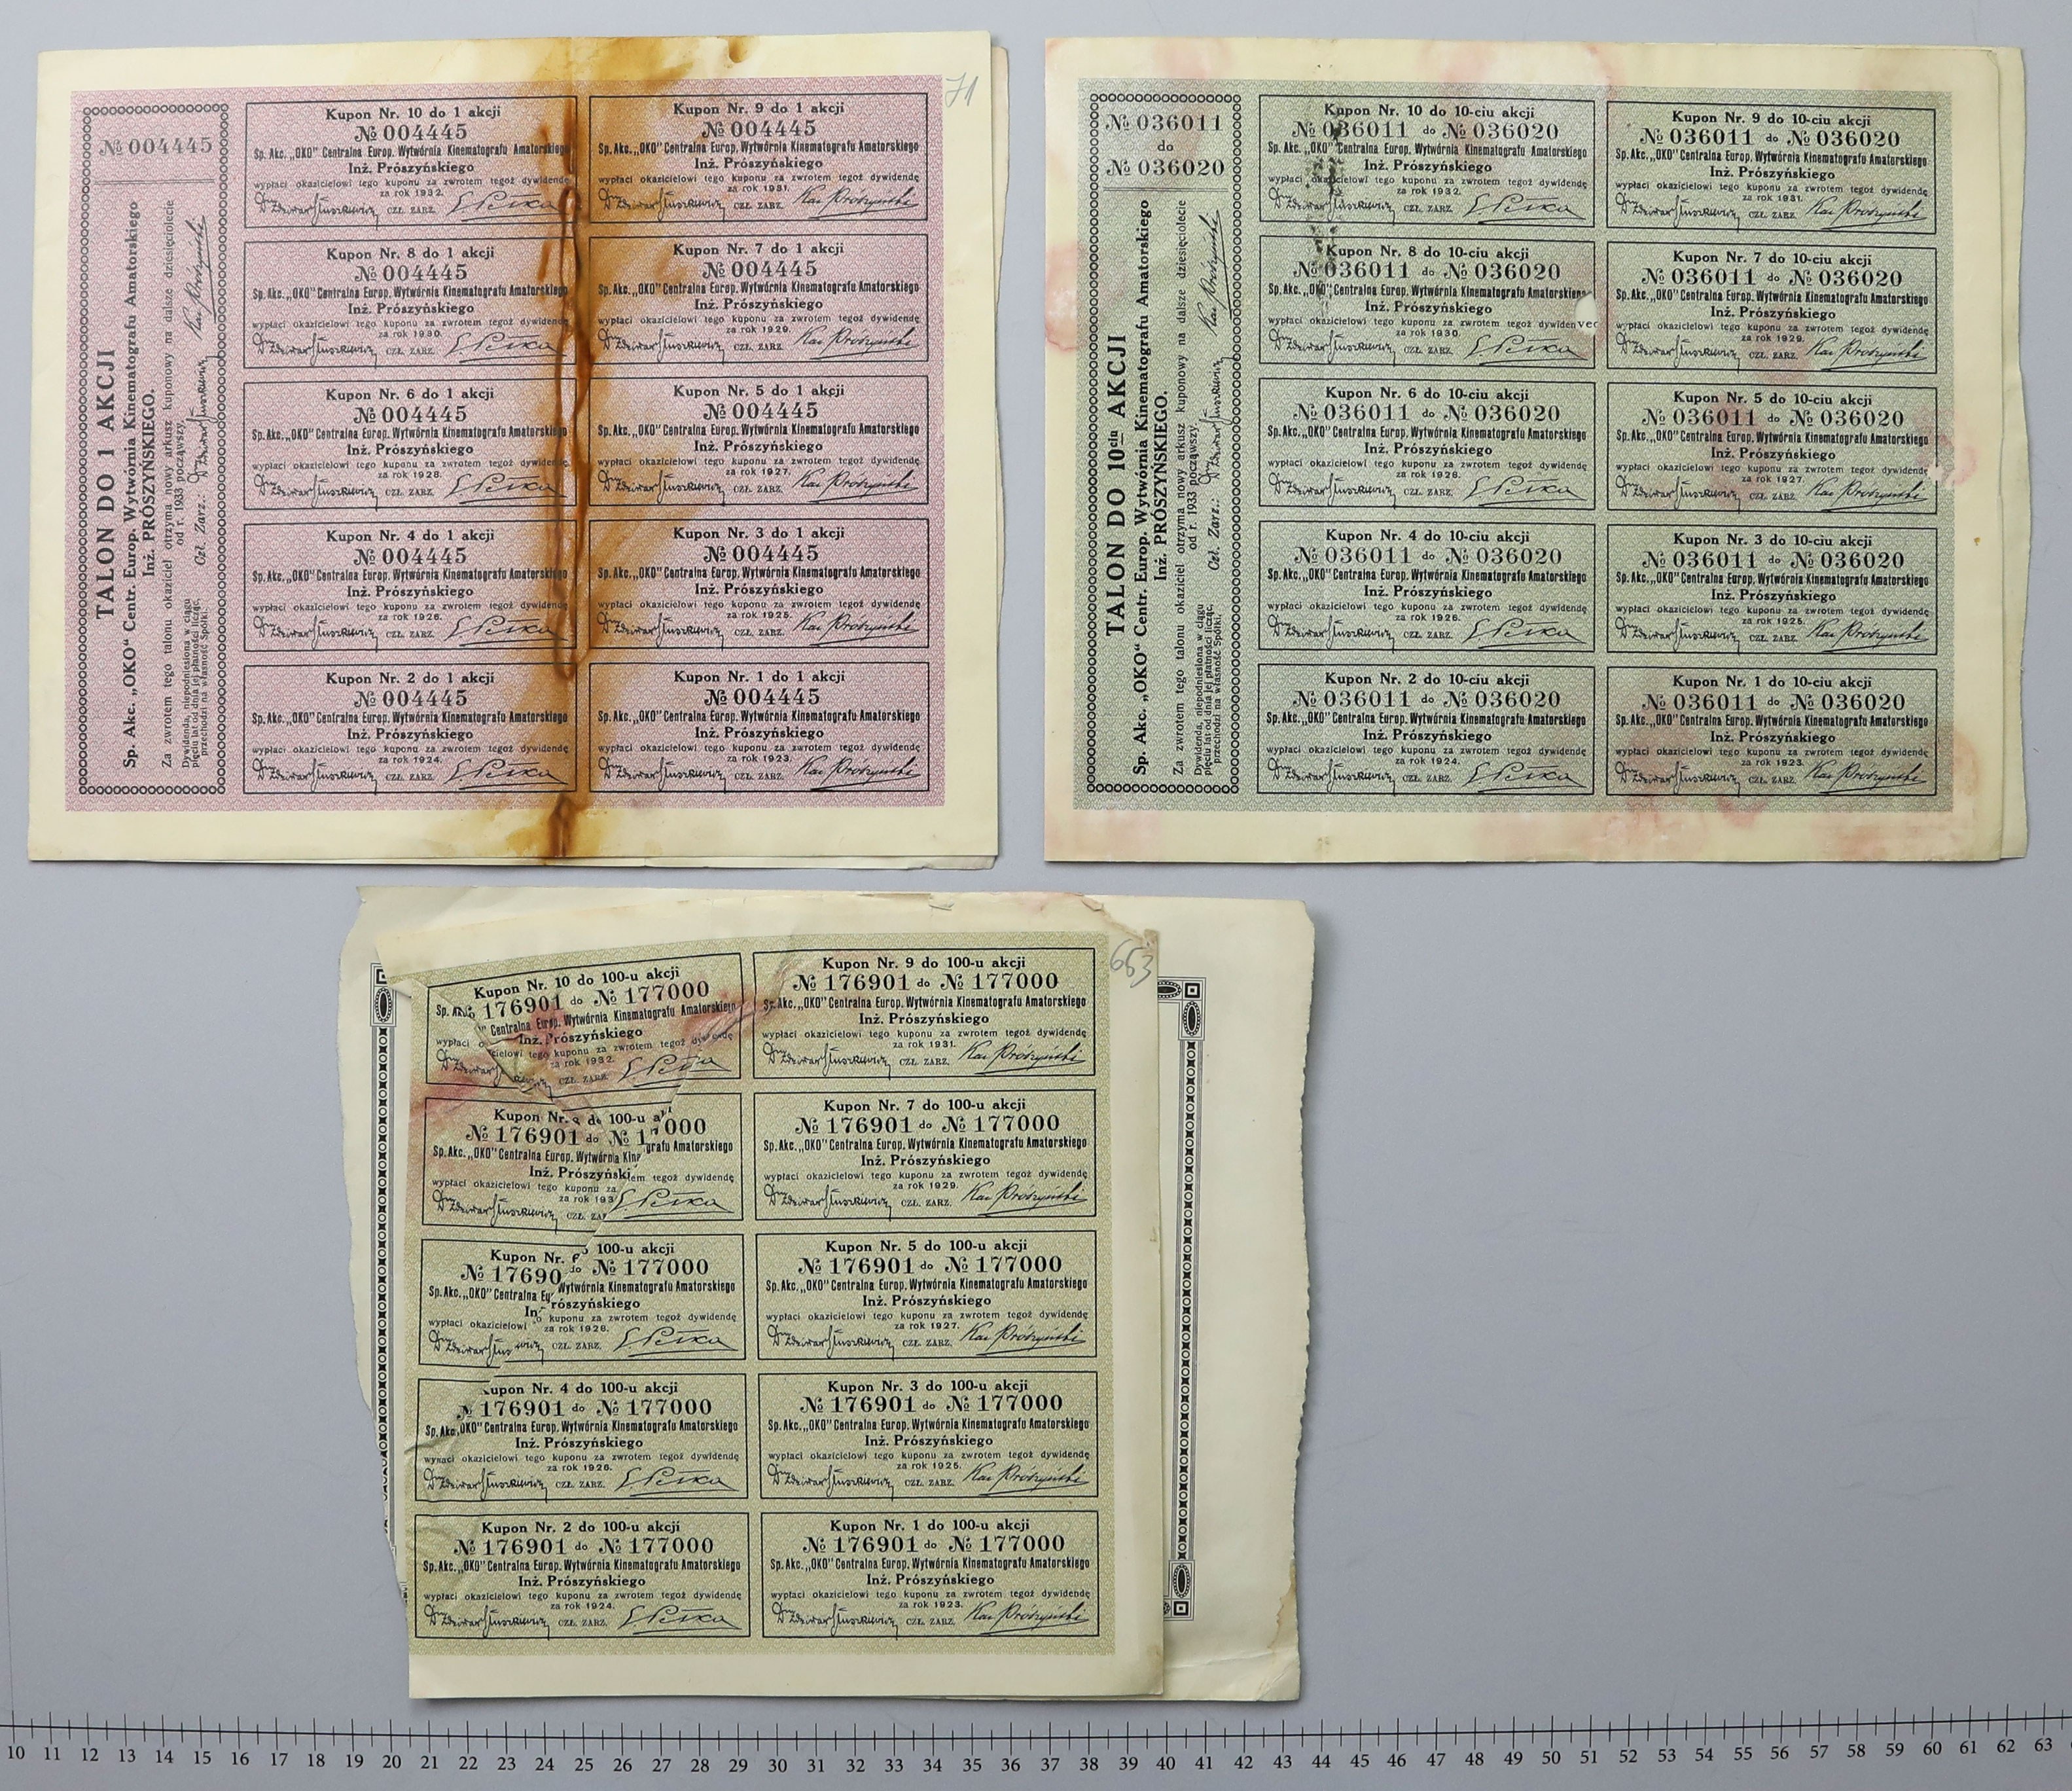 71
№ 004445
TALON DO 1 AKCJI
Sp. Akc. „OKO“ Centr. Europ. Wytwórnia Kinematografu Amatorskiego
Inż. PRÓSZYŃSKIEGO.
Za zwrotem tego talonu okaziciel otrzyma nowy arkusz kuponowy na dalsze dziesięciolecie
od r. 1933 począwszy.
Dywidenda, niepodniesiona w ciągu
pięciu lat od dnia jej płatności licząc,
przechodzi na własność Spółki.
Czł. Zarz.:
Kupon Nr. 10 do 1 akcji
№ 004445
Sp. Akc. „OKO“ Centralna Europ. Wytwórnia Kinematografu Amatorskiego
Inż. Prószyńskiego
wypłaci okazicielowi tego kuponu za zwrotem tegoż dywidendę
za rok 1932.
CZŁ. ZARZ.
Kupon Nr. 9 do 1 akcji
№ 004445
Sp. Akc. „OKO“ Centralna Europ. Wytwórnia Kinematografu Amatorskiego
Inż. Prószyńskiego
wypłaci okazicielowi tego kuponu za zwrotem tegoż dywidendę
za rok 1931.
CZŁ. ZARZ.
Kupon Nr. 8 do 1 akcji
№ 004445
Sp. Akc. „OKO“ Centralna Europ. Wytwórnia Kinematografu Amatorskiego
Inż. Prószyńskiego
wypłaci okazicielowi tego kuponu za zwrotem tegoż dywidendę
za rok 1930.
CZŁ. ZARZ.
Kupon Nr. 7 do 1 akcji
№ 004445
Sp. Akc. „OKO“ Centralna Europ. Wytwórnia Kinematografu Amatorskiego
Inż. Prószyńskiego
wypłaci okazicielowi tego kuponu za zwrotem tegoż dywidendę
za rok 1929.
CZŁ. ZARZ.
Kupon Nr. 6 do 1 akcji
№ 004445
Sp. Akc. „OKO“ Centralna Europ. Wytwórnia Kinematografu Amatorskiego
Inż. Prószyńskiego
wypłaci okazicielowi tego kuponu za zwrotem tegoż dywidendę
za rok 1928.
CZŁ. ZARZ.
Kupon Nr. 5 do 1 akcji
№ 004445
Sp. Akc. „OKO“ Centralna Europ. Wytwórnia Kinematografu Amatorskiego
Inż. Prószyńskiego
wypłaci okazicielowi tego kuponu za zwrotem tegoż dywidendę
za rok 1927.
CZŁ. ZARZ.
Kupon Nr. 4 do 1 akcji
№ 004445
Sp. Akc. „OKO“ Centralna Europ. Wytwórnia Kinematografu Amatorskiego
Inż. Prószyńskiego
wypłaci okazicielowi tego kuponu za zwrotem tegoż dywidendę
za rok 1926.
CZŁ. ZARZ.
Kupon Nr. 3 do 1 akcji
№ 004445
Sp. Akc. „OKO“ Centralna Europ. Wytwórnia Kinematografu Amatorskiego
Inż. Prószyńskiego
wypłaci okazicielowi tego kuponu za zwrotem tegoż dywidendę
za rok 1925.
CZŁ. ZARZ.
Kupon Nr. 2 do 1 akcji
№ 004445
Sp. Akc. „OKO“ Centralna Europ. Wytwórnia Kinematografu Amatorskiego
Inż. Prószyńskiego
wypłaci okazicielowi tego kuponu za zwrotem tegoż dywidendę
za rok 1924.
CZŁ. ZARZ.
Kupon Nr. 1 do 1 akcji
№ 004445
Sp. Akc. „OKO“ Centralna Europ. Wytwórnia Kinematografu Amatorskiego
Inż. Prószyńskiego
wypłaci okazicielowi tego kuponu za zwrotem tegoż dywidendę
za rok 1923.
CZŁ. ZARZ.
№ 036011
do
№ 036020
TALON DO 10ciu AKCJI
Sp. Akc. „OKO“ Centr. Europ. Wytwórnia Kinematografu Amatorskiego
Inż. PRÓSZYŃSKIEGO.
Za zwrotem tego talonu okaziciel otrzyma nowy arkusz kuponowy na dalsze dziesięciolecie
od r. 1933 począwszy.
Dywidenda, niepodniesiona w ciągu
pięciu lat od dnia jej płatności licząc,
przechodzi na własność Spółki.
Czł. Zarz.:
Kupon Nr. 10 do 10-ciu akcji
№ 036011 do № 036020
Sp. Akc. „OKO“ Centralna Europ. Wytwórnia Kinematografu Amatorskiego
Inż. Prószyńskiego
wypłaci okazicielowi tego kuponu za zwrotem tegoż dywidendę
za rok 1932.
CZŁ. ZARZ.
Kupon Nr. 9 do 10-ciu akcji
№ 036011 do № 036020
Sp. Akc. „OKO“ Centralna Europ. Wytwórnia Kinematografu Amatorskiego
Inż. Prószyńskiego
wypłaci okazicielowi tego kuponu za zwrotem tegoż dywidendę
za rok 1931.
CZŁ. ZARZ.
Kupon Nr. 8 do 10-ciu akcji
№ 036011 do № 036020
Sp. Akc. „OKO“ Centralna Europ. Wytwórnia Kinematografu
Inż. Prószyńskiego
wypłaci okazicielowi tego kuponu za zwrotem tegoż
za rok 1930.
CZŁ. ZARZ.
Kupon Nr. 7 do 10-ciu akcji
№ 036011 do № 036020
Sp. Akc. „OKO“ Centralna Europ. Wytwórnia Kinematografu Amatorskiego
Inż. Prószyńskiego
wypłaci okazicielowi tego kuponu za zwrotem tegoż dywidendę
za rok 1929.
CZŁ. ZARZ.
Kupon Nr. 6 do 10-ciu akcji
№ 036011 do № 036020
Sp. Akc. „OKO“ Centralna Europ. Wytwórnia Kinematografu Amatorskiego
Inż. Prószyńskiego
wypłaci okazicielowi tego kuponu za zwrotem tegoż dywidendę
za rok 1928.
CZŁ. ZARZ.
Kupon Nr. 5 do 10-ciu akcji
№ 036011 do № 036020
Sp. Akc. „OKO“ Centralna Europ. Wytwórnia Kinematografu Amatorskiego
Inż. Prószyńskiego
wypłaci okazicielowi tego kuponu za zwrotem tegoż dywidendę
za rok 1927.
CZŁ. ZARZ.
Kupon Nr. 4 do 10-ciu akcji
№ 036011 do № 036020
Sp. Akc. „OKO“ Centralna Europ. Wytwórnia Kinematografu Amatorskiego
Inż. Prószyńskiego
wypłaci okazicielowi tego kuponu za zwrotem tegoż dywidendę
za rok 1926.
CZŁ. ZARZ.
Kupon Nr. 3 do 10-ciu akcji
№ 036011 do № 036020
Sp. Akc. „OKO“ Centralna Europ. Wytwórnia Kinematografu Amatorskiego
Inż. Prószyńskiego
wypłaci okazicielowi tego kuponu za zwrotem tegoż dywidendę
za rok 1925.
CZŁ. ZARZ.
Kupon Nr. 2 do 10-ciu akcji
№ 036011 do № 036020
Sp. Akc. „OKO“ Centralna Europ. Wytwórnia Kinematografu Amatorskiego
Inż. Prószyńskiego
wypłaci okazicielowi tego kuponu za zwrotem tegoż dywidendę
za rok 1924.
CZŁ. ZARZ.
Kupon Nr. 1 do 10-ciu akcji
№ 036011 do № 036020
Sp. Akc. „OKO“ Centralna Europ. Wytwórnia Kinematografu Amatorskiego
Inż. Prószyńskiego
wypłaci okazicielowi tego kuponu za zwrotem tegoż dywidendę
za rok 1923.
CZŁ. ZARZ.
653
Kupon Nr. 10 do 100-u akcji
№ 176901 do № 177000
Sp. Centralna Europ. Wytwórnia Kinematografu Amatorskiego
Inż. Prószyńskiego
wypłaci tego kuponu za zwrotem tegoż dywidendę
za rok 1932.
CZŁ. ZARZ.
Kupon Nr. 9 do 100-u akcji
№ 176901 do № 177000
Sp. Akc. „OKO“ Centralna Europ. Wytwórnia Kinematografu Amatorskiego
Inż. Prószyńskiego
wypłaci okazicielowi tego kuponu za zwrotem tegoż dywidendę
za rok 1931.
CZŁ. ZARZ.
Kupon Nr. do 100-u
№ 176901 do №
Sp. Akc. „OKO“ Centralna Europ. Wytwórnia Amatorskiego
Inż.
wypłaci okazicielowi tego kuponu za tegoż dywidendę
za rok
CZŁ.
Kupon Nr. 7 do 100-u akcji
№ 176901 do № 177000
Sp. Akc. „OKO“ Centralna Europ. Wytwórnia Kinematografu Amatorskiego
Inż. Prószyńskiego
wypłaci okazicielowi tego kuponu za zwrotem tegoż dywidendę
za rok 1929.
CZŁ. ZARZ.
Kupon Nr. 100-u akcji
№ 17690 do № 177000
Sp. Akc. „OKO“ Centralna Wytwórnia Kinematografu Amatorskiego
wypłaci okazicielowi kuponu za zwrotem tegoż dywidendę
za rok 1928.
CZŁ. ZARZ.
Kupon Nr. 5 do 100-u akcji
№ 176901 do № 177000
Sp. Akc. „OKO“ Centralna Europ. Wytwórnia Kinematografu Amatorskiego
Inż. Prószyńskiego
wypłaci okazicielowi tego kuponu za zwrotem tegoż dywidendę
za rok 1927.
CZŁ. ZARZ.
Kupon Nr. 4 do 100-u akcji
№ 176901 do № 177000
Sp. Akc. „OKO“ Centralna Europ. Wytwórnia Kinematografu Amatorskiego
Inż. Prószyńskiego
wypłaci okazicielowi tego kuponu za zwrotem tegoż dywidendę
za rok 1926.
CZŁ. ZARZ.
Kupon Nr. 3 do 100-u akcji
№ 176901 do № 177000
Sp. Akc. „OKO“ Centralna Europ. Wytwórnia Kinematografu Amatorskiego
Inż. Prószyńskiego
wypłaci okazicielowi tego kuponu za zwrotem tegoż dywidendę
za rok 1925.
CZŁ. ZARZ.
Kupon Nr. 2 do 100-u akcji
№ 176901 do № 177000
Sp. Akc. „OKO“ Centralna Europ. Wytwórnia Kinematografu Amatorskiego
Inż. Prószyńskiego
wypłaci okazicielowi tego kuponu za zwrotem tegoż dywidendę
za rok 1924.
CZŁ. ZARZ.
Kupon Nr. 1 do 100-u akcji
№ 176901 do № 177000
Sp. Akc. „OKO“ Centralna Europ. Wytwórnia Kinematografu Amatorskiego
Inż. Prószyńskiego
wypłaci okazicielowi tego kuponu za zwrotem tegoż dywidendę
za rok 1923.
CZŁ. ZARZ.
10 11 12 13 14 15 16 17 18 19 20 21 22 23 24 25 26 27 28 29 30 31 32 33 34 35 36 37 38 39 40 41 42 43 44 45 46 47 48 49 50 51 52 53 54 55 56 57 58 59 60 61 62 63